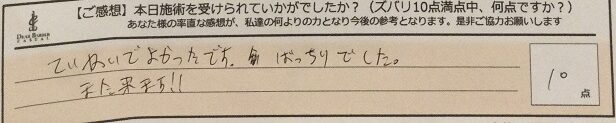 【ご感想】本日施術を受けられていかがでしたか？（ズバリ10点満点中、何点ですか？）
あなた様の率直な感想が、私達の何よりの力となり今後の参考となります。是非ご協力お願いします
DEAR BARBER
ていねいでよかったです。ばっちりでした。
また来ます!!
10点